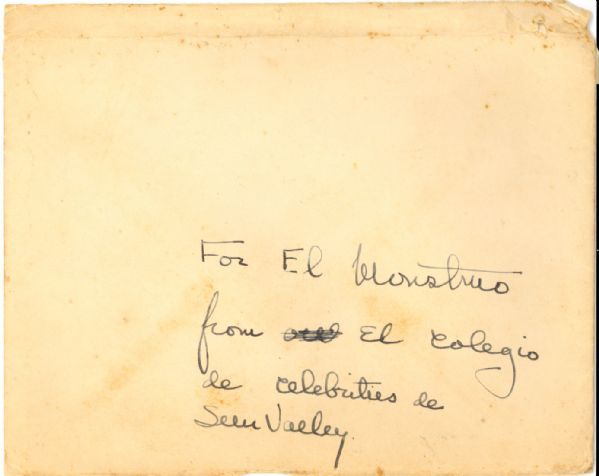 For El Monstruo
from El colegio
de celebrities de
Seun Valley.